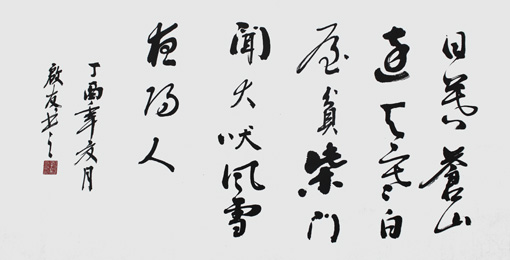 日暮蒼山
遠天寒白
屋貧柴门
聞犬吠風雪
夜歸人
丁酉年夏月